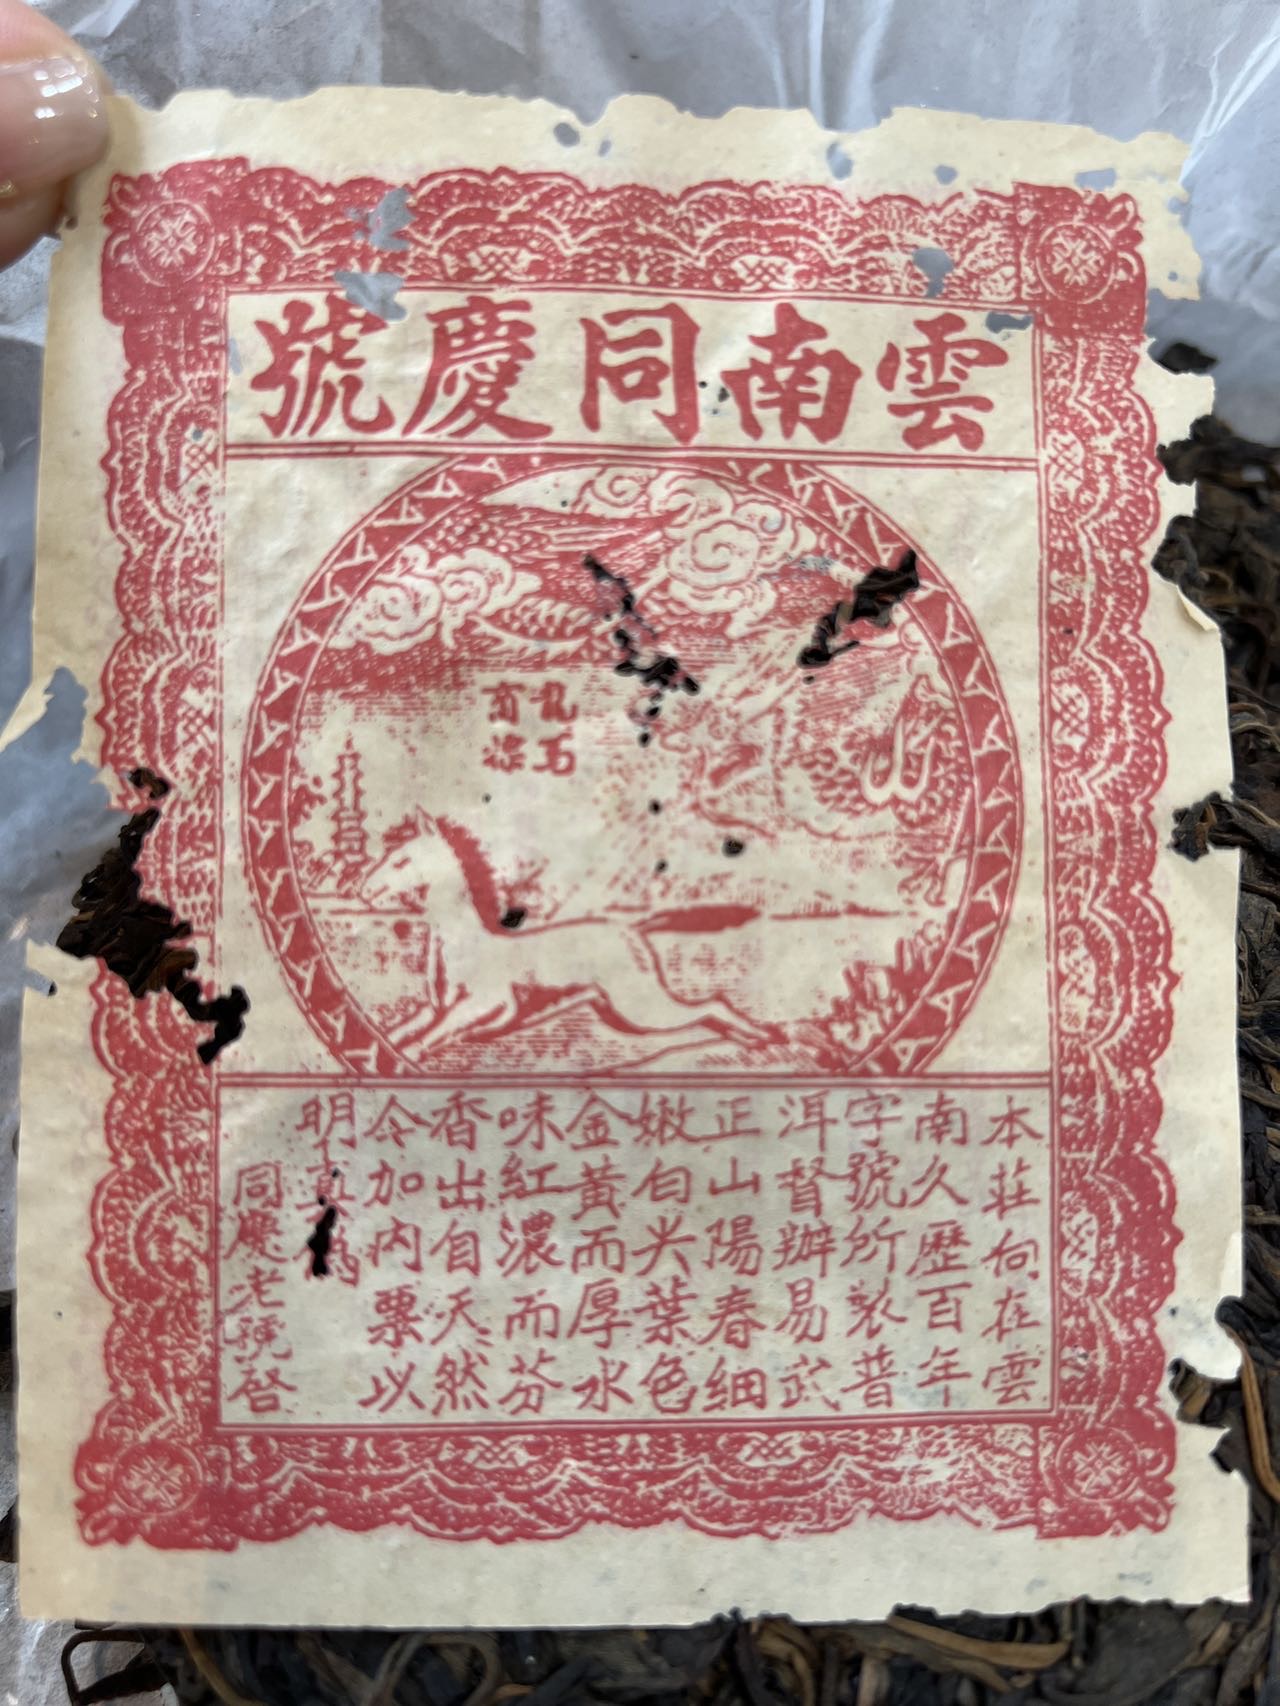 雲南同慶號
龍馬
商標
本莊向在雲
南久歷百年
字號所製普
洱督辦易武
正山陽春細
嫩白尖葉色
金黃而厚水
味紅濃而芬
香出自天然
今加內票以
明真偽
同慶老號啓